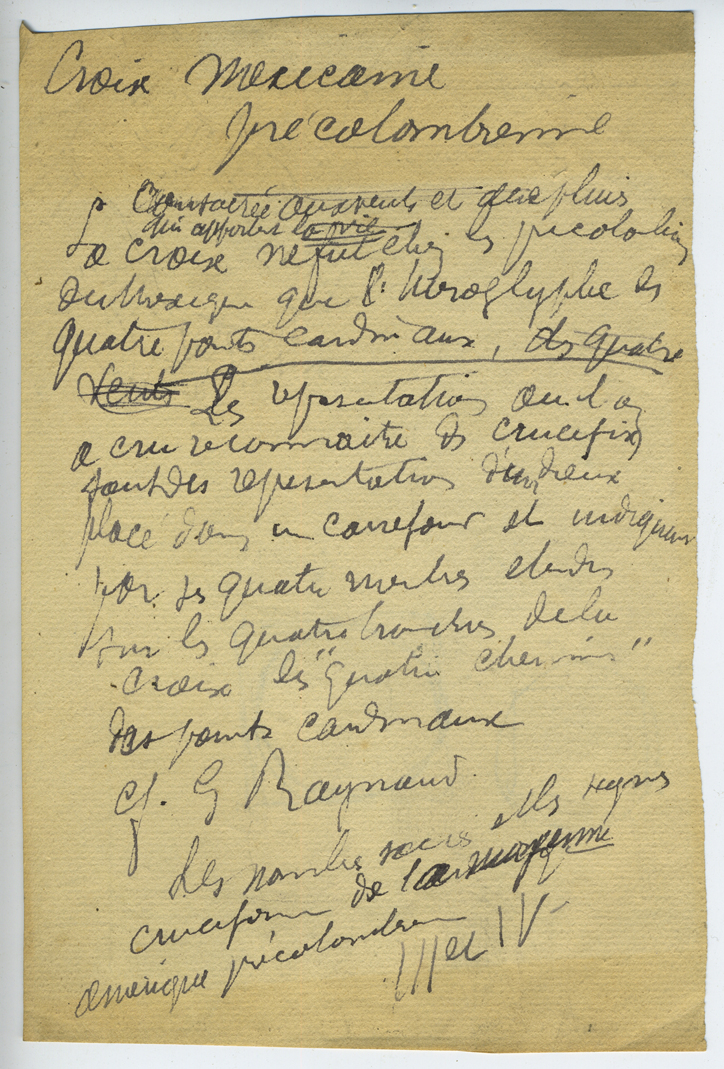 Croix Mexicaine
précolombienne
Consacrée aux vents et aux pluies
qui apportent la vie
La croix ne fut chez les précolombiens
du Mexique que l'hiéroglyphe des
quatre points cardinaux, des quatre
vents Les représentations où l'on
a cru reconnaître des crucifix
sont des représentations d'un dieux
placé dans un carrefour et indiquant
par ses quatre membres étendus
sur les quatre branches de la
croix les "quatre chemins"
des points cardinaux
cf. G Raynaud
Les nombres sacrés et les signes
cruciformes de la moyenne
amérique précolombienne
III et IV